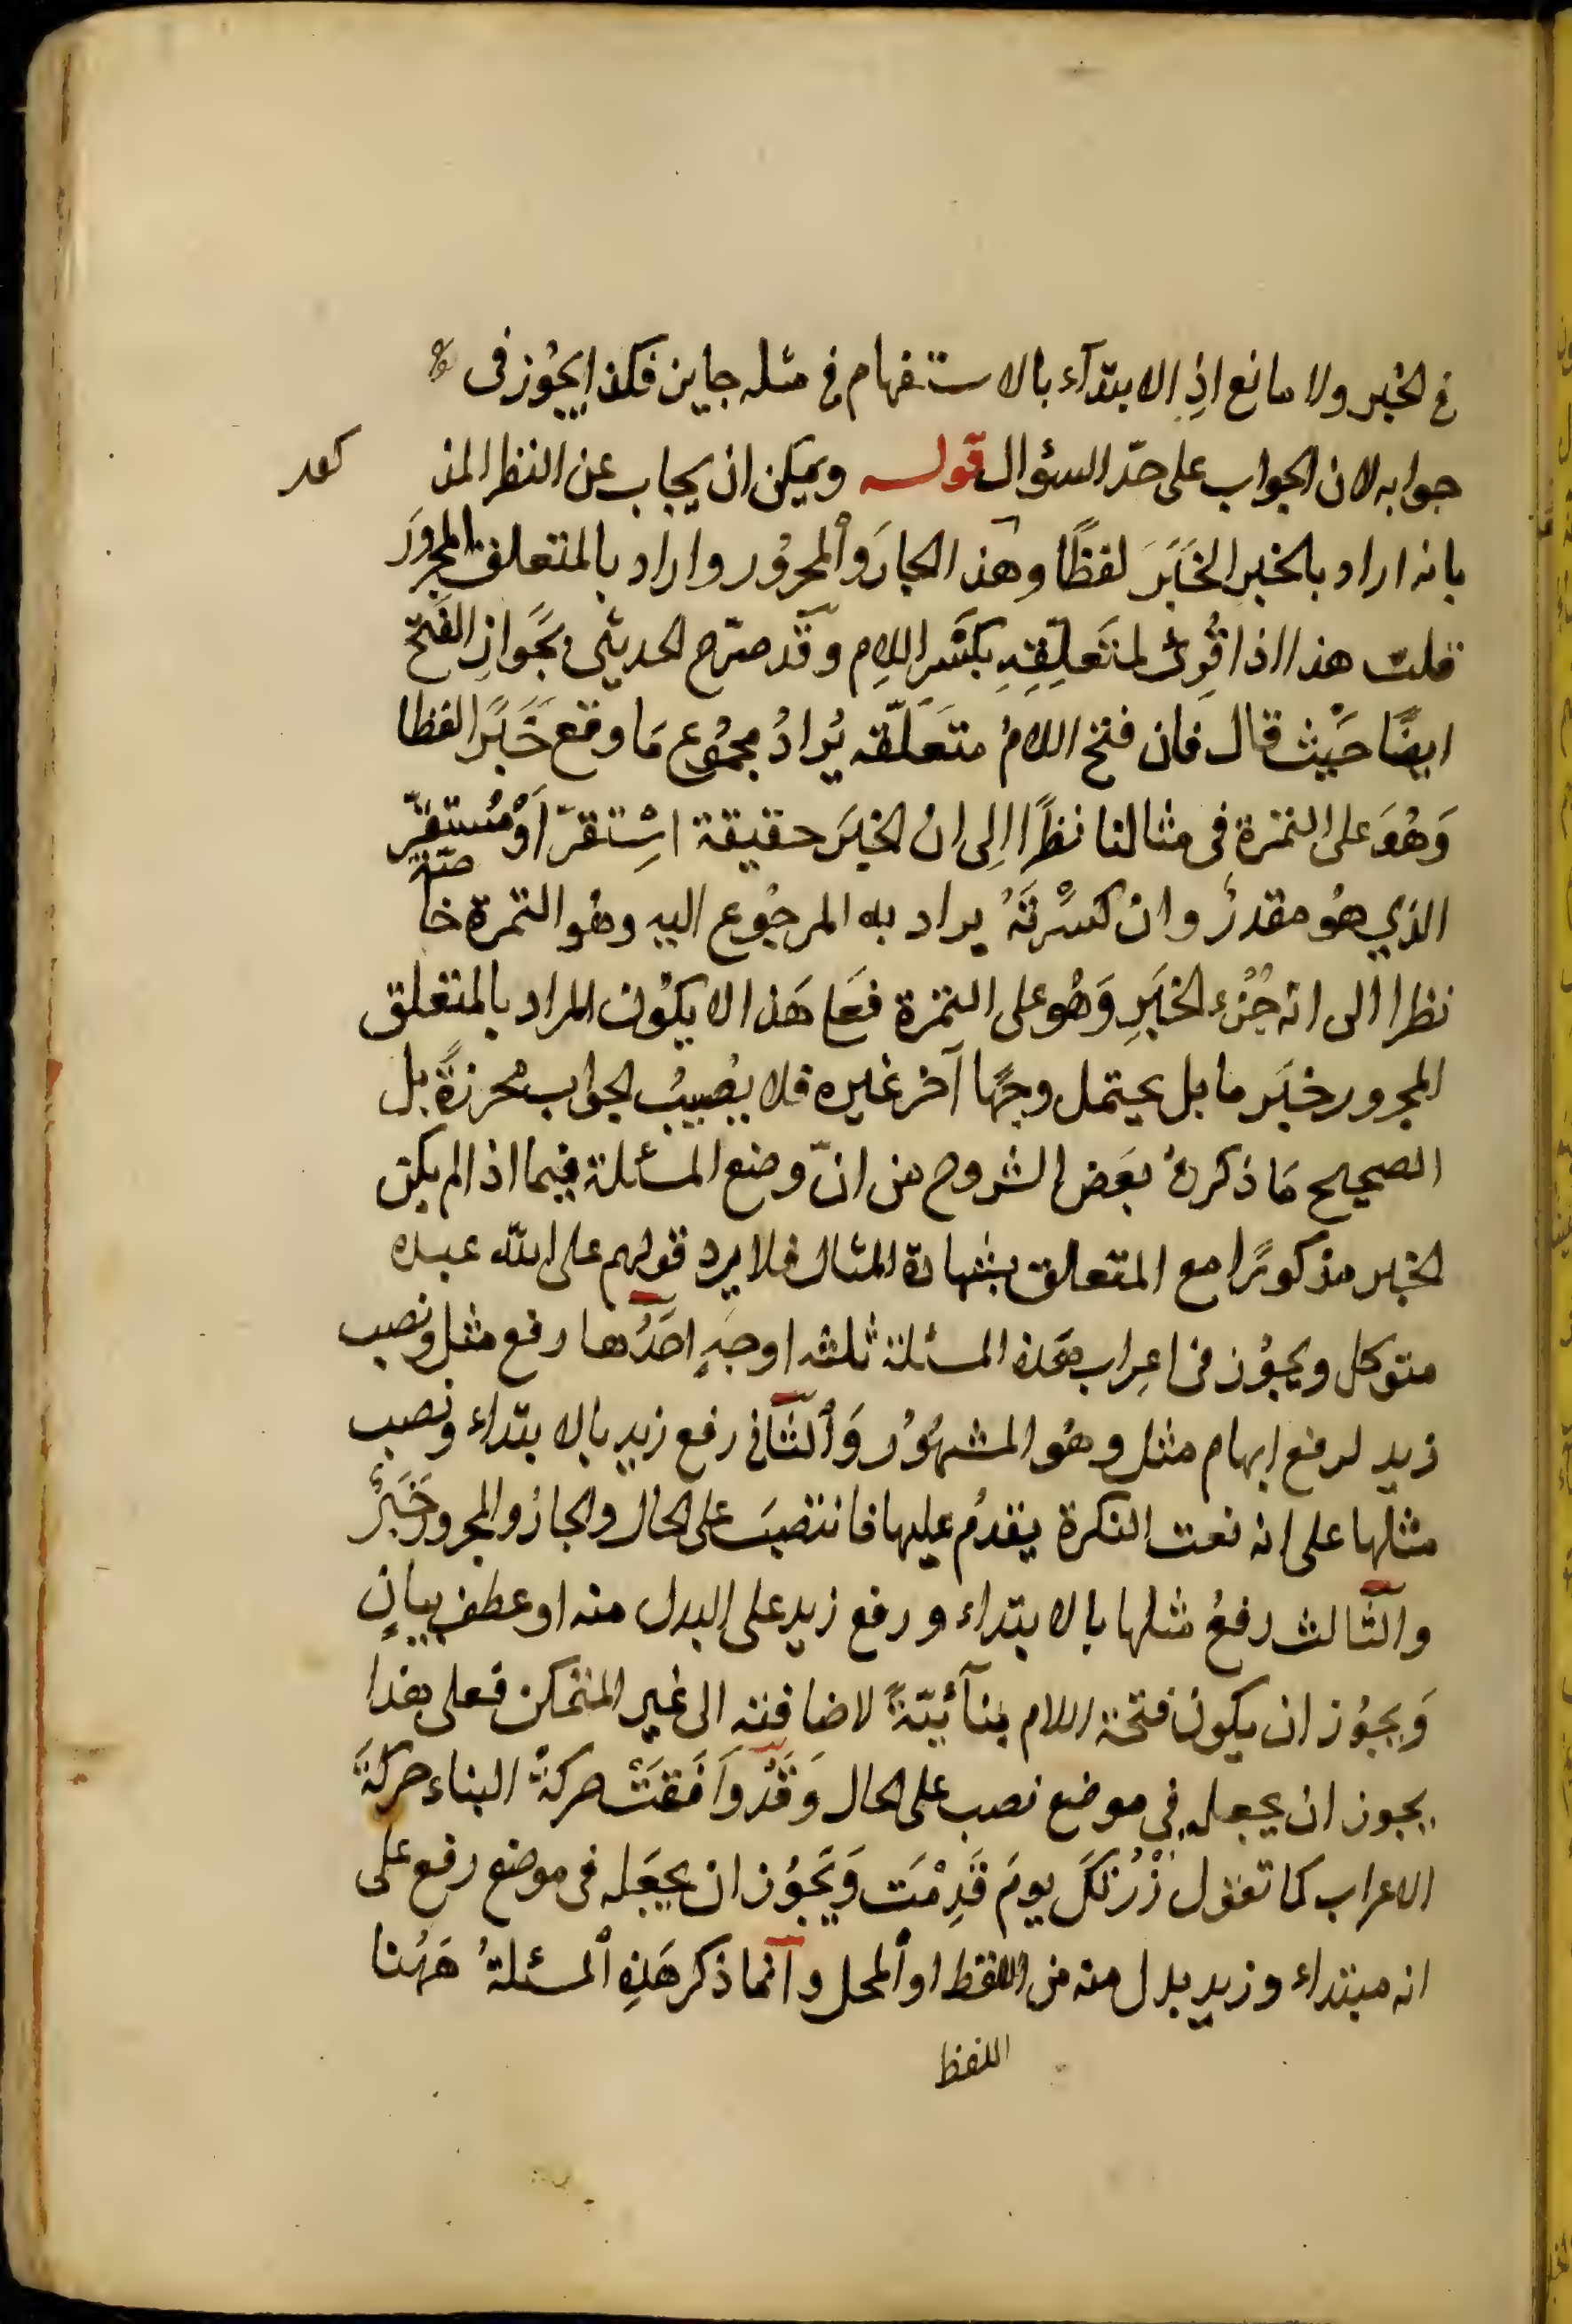 في الخبر ولا مانع اذِ الابتدآء بالاستفهام في مثله جايز فكذا يجُوز في
جوابه لان الجواب على حدّ السؤال قوله ويمكن ان يجاب عن النظر المذ
بانه اراد بالخبرِ الخَبَرَ لفظًا وهذا الجارَ وٱلمجرُور واراد بالمتعلق المجرورَ
قلت هذا اذا قُرِئَ لمتَعَلِّقِهِ بكسْرِ اللامِ وقَد صرّح الحديثى بجَوازِ الفَتْحِ
ايضًا حَيْث قال فان فتح اللامُ متَعَلَّقه يُرادُ مجمُوع مَا وقع خَبَرًا لفظا
وَهُوَ على التمرة فى مثالنا نظرًا اِلى ان الخبرَ حقيقة اسْتقرّ اَوْ مُستقرٌّ
الذي هُو مقدرٌ وان كسرْتَهُ يراد به المرجُوع اليه وهُو التمرة خاصّة
نظرا الى انه جُزْء الخبَرِ وَهُو على التمرة فعَلى هَذا لا يكوُن المراد بالمتعلق
المجرور خبَر ما بل يحتمل وجهًا آخر غيره فلا يصُيبُ الجواب محرزةً بل
الصحيح مَا ذكرهُ بعَض الشروح من انّ وضع المسئلة فيما اذا لم يكن
الخبر مذكورًا مع المتعلق بشهادة المثال فلا يرد قولهم على الله عبده
متوكل ويجوُز فى اعِراب هَذه المسئلة ثلثه اوجهٍ احَدُها رفع مثل ونصب
زيد لرفع ابهام مثل وهُو المشهوُر وَٱلثّانى رفع زيد بالابتداء ونصب
مثلها على انه نعت النكرة يقدمُ عليها فانتصبَ على الحال والجارُ والمجرور خَبَرٌ
والثّالث رفعُ مثلها بالابتداء ورفع زيد على البدل منه او عطف بيانٍ
وَيجوُز ان يكون فتحة اللام بنآئيّةً لاضافتهِ الى غير المتمكن فعلى هذا
يجوز ان يجعله في موضع نصب على الحال وَقَدْ وَافَقَتْ حركةُ البناء حركَةَ
الاعراب كما تقول زُرْتكَ يومَ قَدِمْتَ وَيَجوُز ان يجعَله فى موضع رفع على
انه مبتداء وزيد بدل منه من اللفظ او ٱلمحل وانّما ذكر هَذِهِ ٱلمسئلةُ هَهُنا
اللفظ